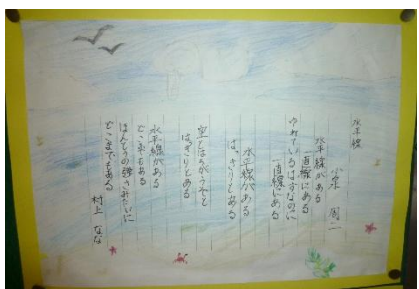 水平線
小泉 周二
水平線がある
一直線にある
ゆれているはずなのに
一直線にある
水平線がある
はっきりとある
空とはちがうぞと
はっきりとある
水平線がある
どこまでもある
ほんとうの強さみたいに
どこまでもある
村上 なな